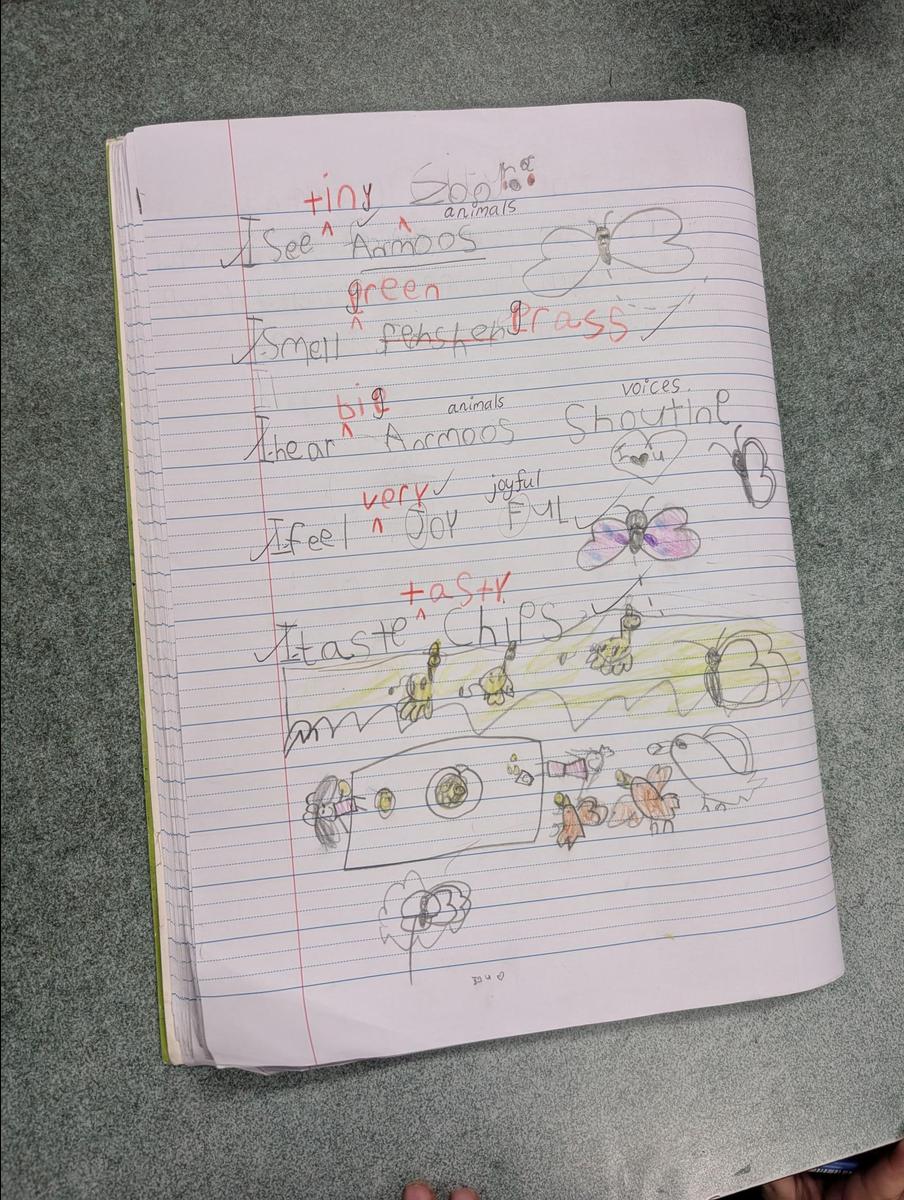 tiny
animals
I See ^ Anmoos ^
green
I Smell ^ fenshen grass
big animals voices.
I hear ^ Anmoos Shoutine
very joyful
I feel ^ Joy FUL
I ♥ u
tasty
I taste ^ Chips